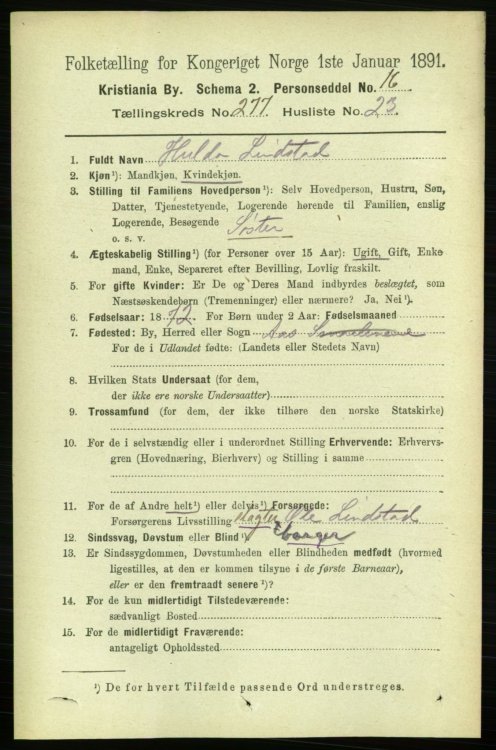 Folketælling for Kongeriget Norge 1ste Januar 1891.
Kristiania By. Schema 2. Personseddel No. 16
Tællingskreds No. 277 Husliste No. 23
1. Fuldt Navn Hulda Lindstad
2. Kjøn¹): Mandkjøn, Kvindekjøn.
3. Stilling til Familiens Hovedperson¹): Selv Hovedperson, Hustru, Søn,
Datter, Tjenestetyende, Logerende hørende til Familien, enslig
Logerende, Besøgende
o. s. v. Søster
4. Ægteskabelig Stilling¹) (for Personer over 15 Aar): Ugift, Gift, Enke-
mand, Enke, Separeret efter Bevilling, Lovlig fraskilt.
5. For gifte Kvinder: Er De og Deres Mand indbyrdes beslægtet, som
Næstsøskendebørn (Tremenninger) eller nærmere? Ja, Nei¹).
6. Fødselsaar: 1872. For Børn under 2 Aar: Fødselsmaaned
7. Fødested: By, Herred eller Sogn Aas
For de i Udlandet fødte: (Landets eller Stedets Navn)
8. Hvilken Stats Undersaat (for dem,
der ikke ere norske Undersaatter)
9. Trossamfund (for dem, der ikke tilhøre den norske Statskirke)
10. For de i selvstændig eller i underordnet Stilling Erhvervende: Erhvervs-
gren (Hovednæring, Bierhverv) og Stilling i samme
11. For de af Andre helt¹) eller delvis¹) Forsørgede:
Forsørgerens Livsstilling Ole Lindstad
12. Sindssvag, Døvstum eller Blind¹)
13. Er Sindssygdommen, Døvstumheden eller Blindheden medfødt (hvormed
ligestilles, at den er kommen tilsyne i de første Barneaar),
eller er den fremtraadt senere¹)?
14. For de kun midlertidigt Tilstedeværende:
sædvanligt Bosted
15. For de midlertidigt Fraværende:
antageligt Opholdssted
¹) De for hvert Tilfælde passende Ord understreges.